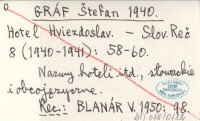 GRÁF Štefan 1940.
Hotel Hviezdoslav. - Slov. Reč
8 (1940-1941): 58-60.
Nazwy hoteli itd., słowackie
i obcojęzyczne.
Rec.: BLANÁR V. 1950: 98.